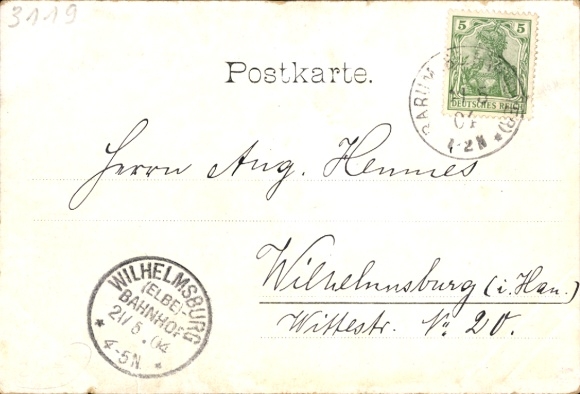 3119
Postkarte.
5
DEUTSCHES REICH
BARUM
04
1-2N *
Herrn Aug. Hennes
Wilhelmsburg (i. Han.)
Wittestr. No 20.
WILHELMSBURG
(ELBE)
BAHNHOF
21/5.04
* 4-5N. *